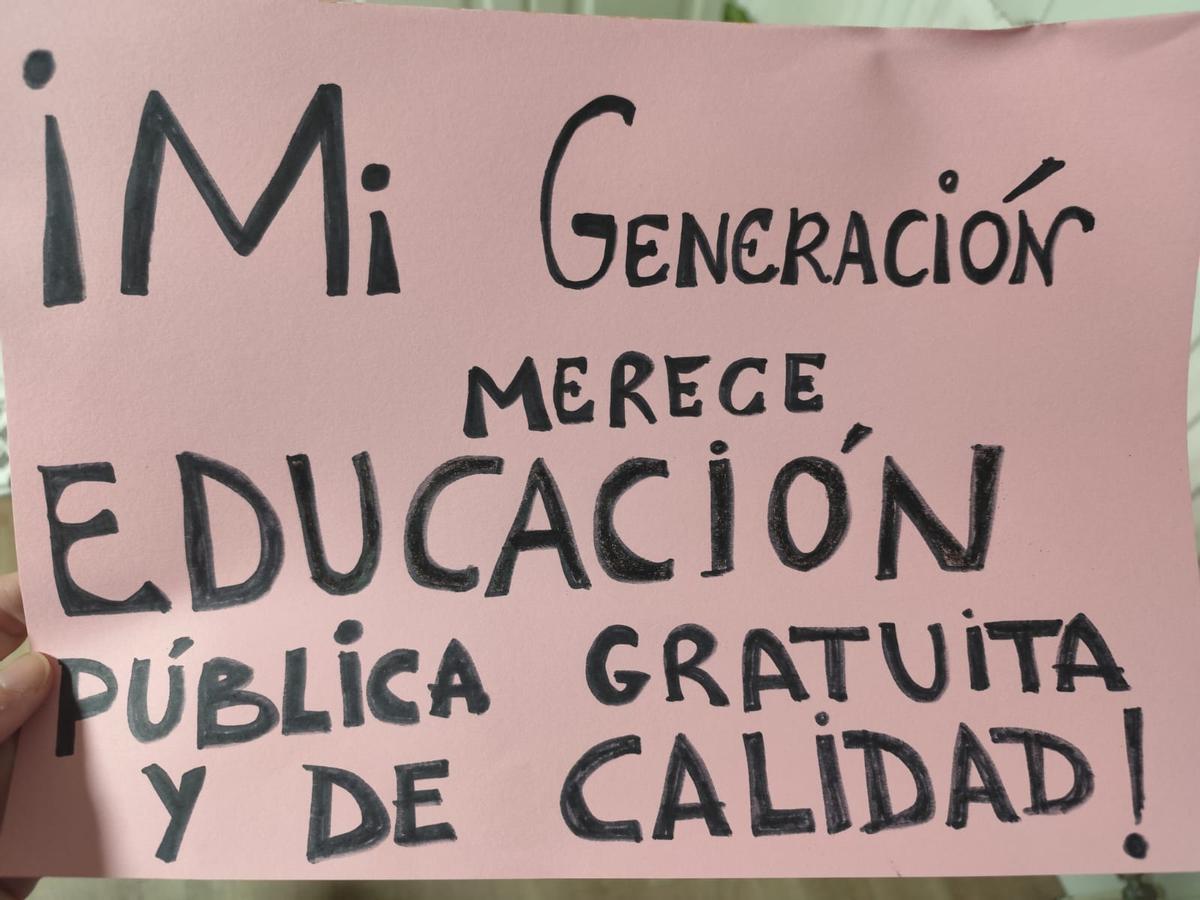 ¡Mi GENERACiÓN
MERECE
EDUCACiÓN
PÚBLiCA GRATUiTA
Y DE CALiDAD!